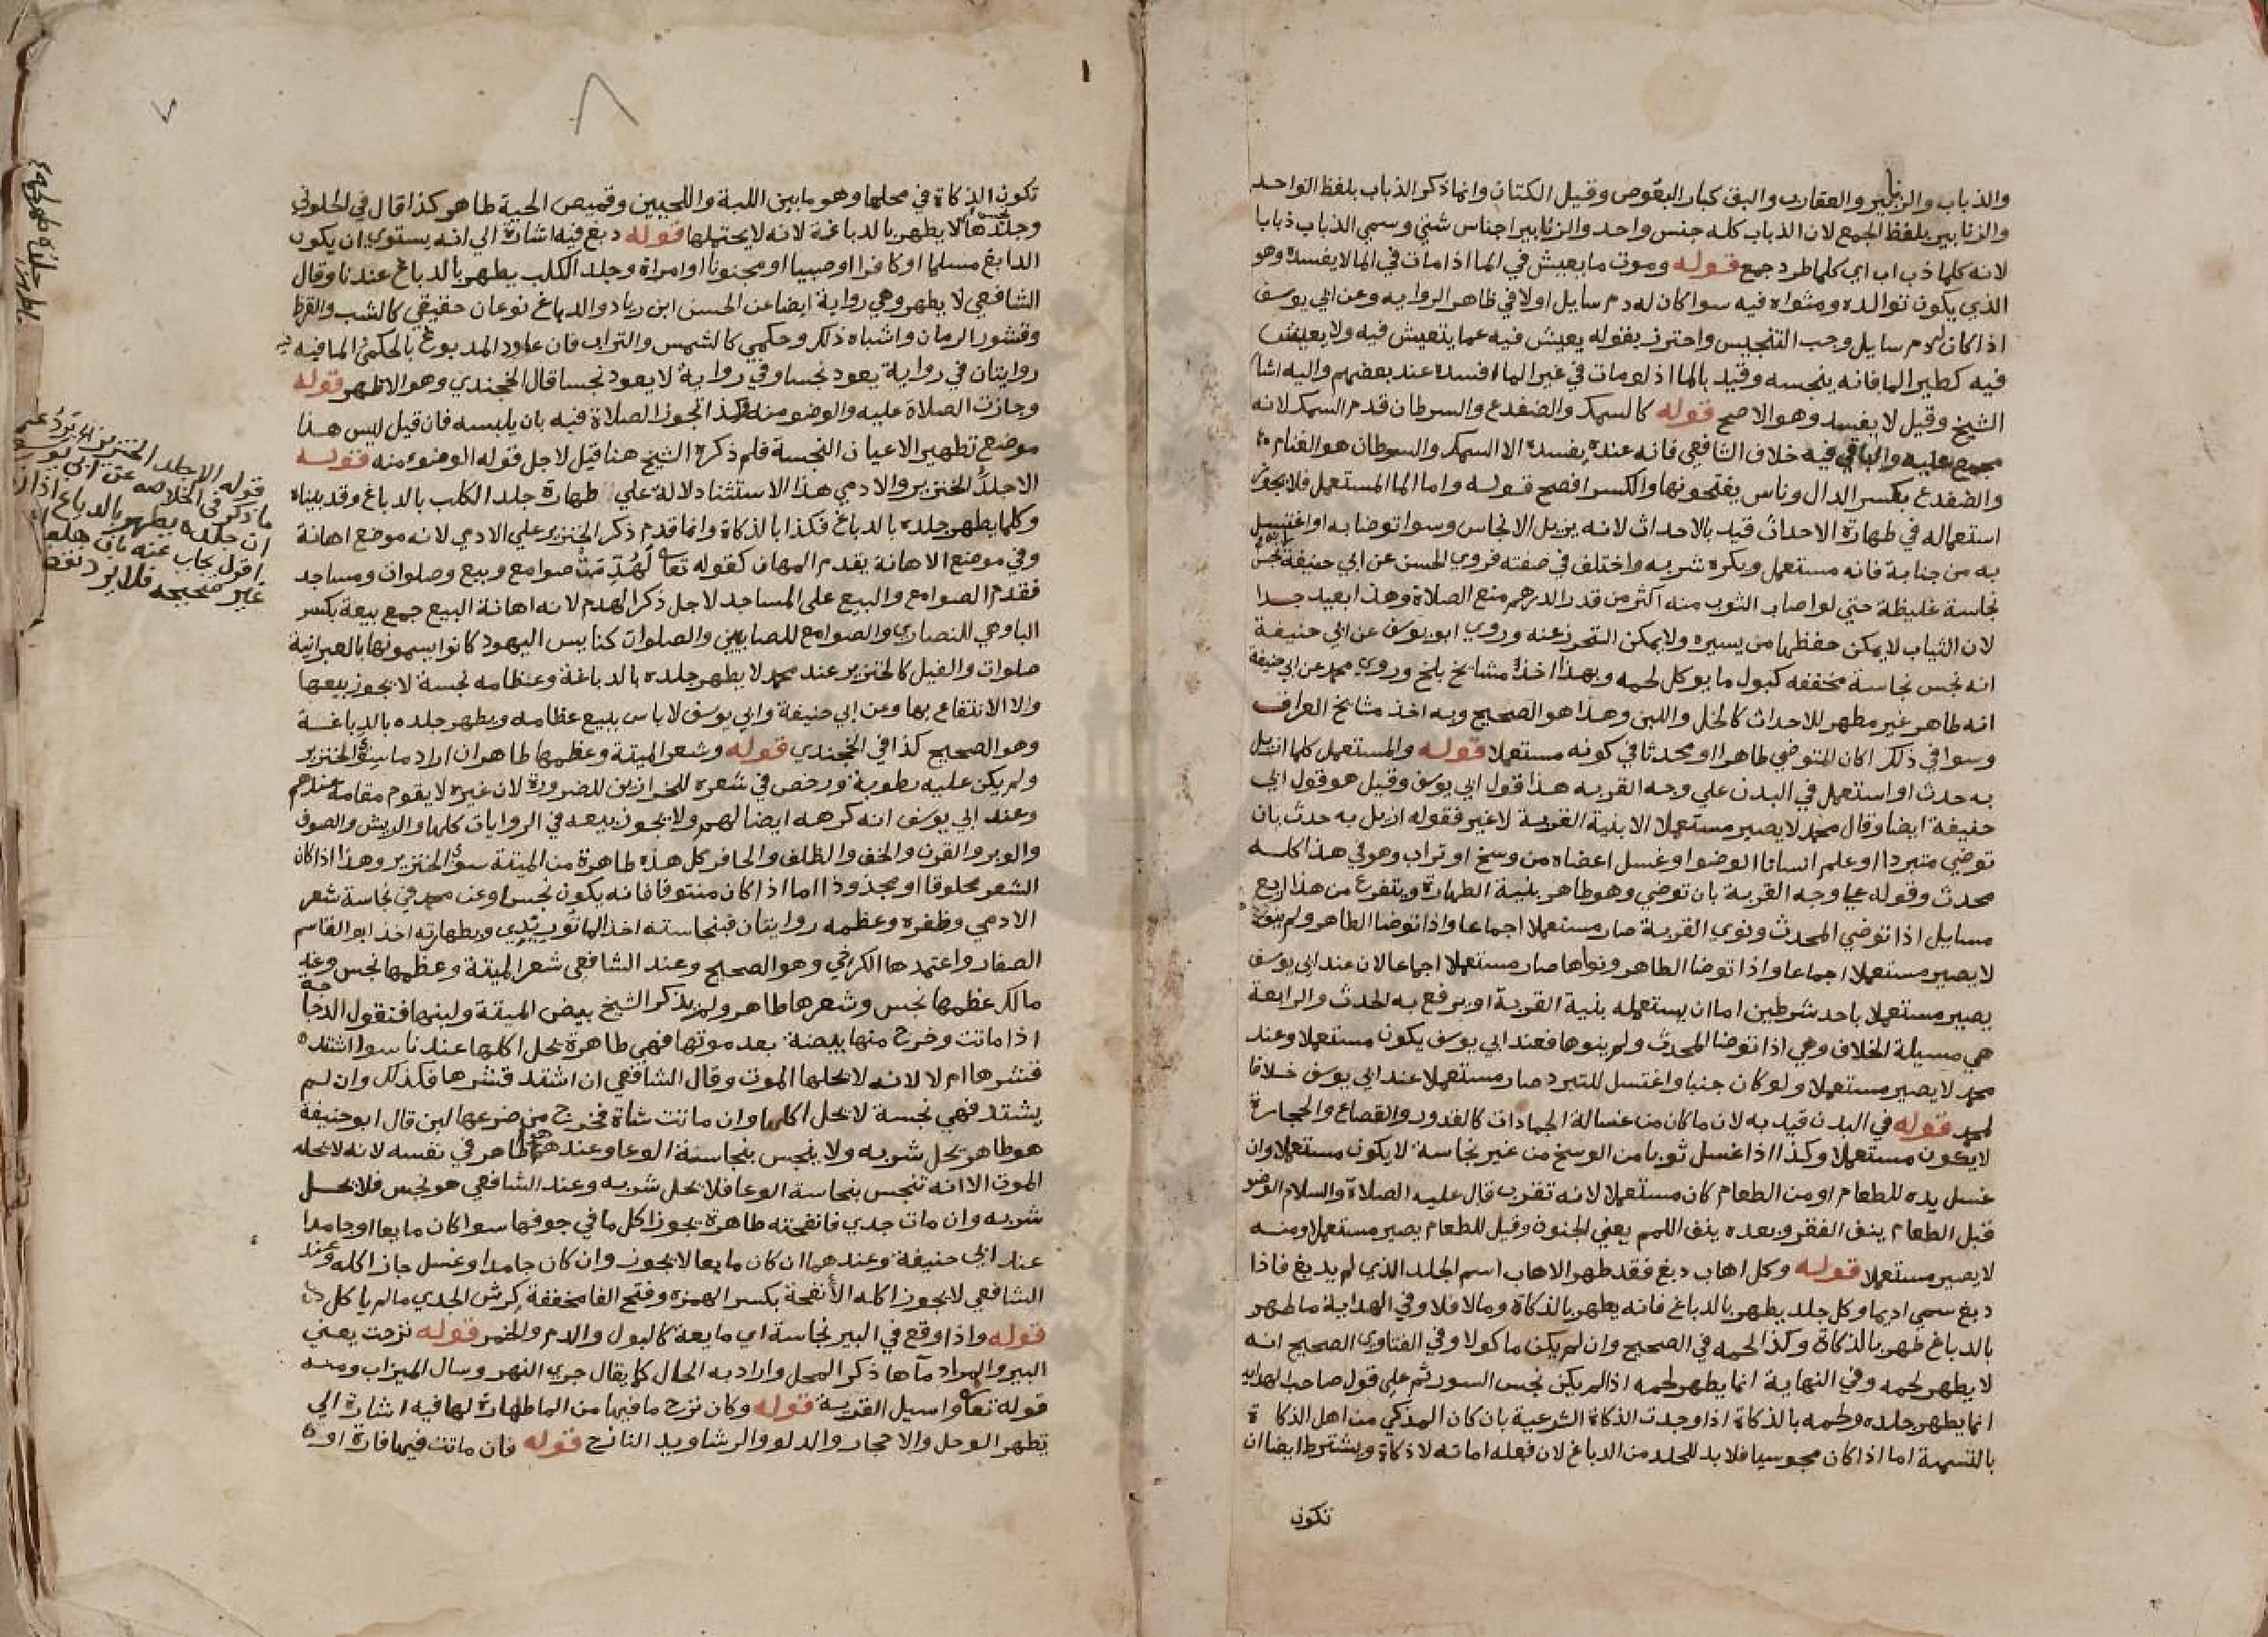 والذباب والزنابير والعقارب والبق كبار البعوض وقيل الكتان وانما ذكر الذباب بلفظ الواحد
والزنابير بلفظ الجمع لان الذباب كله جنس واحد والزنابير اجناس شتي وسمي الذباب ذبابا
لانه كلما ذب اب اي كلما طرد جمع قوله وموت ما يعيش في الما اذا مات في الما لا يفسده وهو
الذي يكون توالده ومثواه فيه سوا كان له دم سايل اولا في ظاهر الرواية وعن ابي يوسف
اذا كان له دم سايل وجب التنجيس واحترز بقوله يعيش فيه عما يتعيش فيه ولا يعيش
فيه كطير الما فانه ينجسه وقيد بالما اذ لو مات في غير الما افسده عند بعضهم واليه اشا
الشيخ وقيل لا يفسد وهو الاصح قوله كالسمك والضفدع والسرطان قدم السمك لانه
مجمع عليه والباقي فيه خلاف الشافعي فانه عنده يفسده الا السمك والسرطان هو العنام
والضفدع بكسر الدال وناس يفتحونها والكسر افصح قوله واما الما المستعمل فلا يجوز
استعماله في طهارة الاحداث قيد بالاحداث لانه يزيل الانجاس وسوا توضا به او اغتسل
به من جنابة فانه مستعمل ويكره شربه واختلف في صفته فروي الحسن عن ابي حنيفة انه نجس
نجاسة غليظة حتي لو اصاب الثوب منه اكثر من قدر الدرهم منع الصلاة وهذا بعيد جدا
لان الثياب لا يمكن حفظها من يسيره ولا يمكن التحرز عنه وروي ابو يوسف عن ابي حنيفة
انه نجس نجاسة مخففه كبول ما يوكل لحمه وبهذا اخذ مشايخ بلخ وروي محمد عن ابي حنيفة
انه طاهر غير مطهر للاحداث كالخل واللبن وهذا هو الصحيح وبه اخذ مشايخ العراق
وسوا في ذلك اكان المتوضي طاهرا او محدثا في كونه مستعملا قوله والمستعمل كلما ازيل
به حدث او استعمل في البدن علي وجه القربه هذا قول ابي يوسف وقيل هو قول ابي
حنيفة ايضا وقال محمد لا يصير مستعملا الا بنية القربة لا غير فقوله ازيل به حدث بان
توضي متبردا او علم انسانا الوضو او غسل اعضاه من وسخ او تراب وهو في هذا كله
محدث وقوله علي وجه القربة بان توضي وهو طاهر بنية الطهارة ويتفرع من هذا اربع
مسايل اذا توضي المحدث ونوي القربة صار مستعملا اجماعا واذا توضا الطاهر ولم ينو
لا يصير مستعملا اجماعا واذا توضا الطاهر ونواها صار مستعملا اجماعا لان عند ابي يوسف
يصير مستعملا باحد شرطين اما ان يستعمله بنية القربة او يرفع به الحدث والرابعة
هي مسيلة الخلاف وهي اذا توضا المحدث ولم ينوها فعند ابي يوسف يكون مستعملا وعند
محمد لا يصير مستعملا ولو كان جنبا واغتسل للتبرد صار مستعملا عند ابي يوسف خلافا
لمحمد قوله في البدن قيد به لان ما كان من غسالة الجمادات كالقدور والقصاع والحجارة
لا يكون مستعملا وكذا اذا غسل ثوبا من الوسخ من غير نجاسة لا يكون مستعملا وان
غسل يده للطعام او من الطعام كان مستعملا لانه تقرب قال عليه الصلاة والسلام الوضو
قبل الطعام ينفي الفقر وبعده ينفي اللمم يعني الجنون وقيل للطعام يصير مستعملا ومنه
لا يصير مستعملا قوله وكل اهاب دبغ فقد طهر الاهاب اسم الجلد الذي لم يدبغ فاذا
دبغ سمي اديما وكل جلد يطهر بالدباغ فانه يطهر بالذكاة وما لا فلا وفي الهداية ما طهر
بالدباغ طهر بالذكاة وكذا لحمه في الصحيح وان لم يكن ماكولا وفي الفتاوي الصحيح انه
لا يطهر لحمه وفي النهاية انما يطهر لحمه اذا لم يكن نجس السور ثم علي قول صاحب الهدايه
انما يطهر جلده ولحمه بالذكاة اذا وجدت الذكاة الشرعية بان كان المذكي من اهل الذكاة
بالتسمية اما اذا كان مجوسيا فلا بد للجلد من الدباغ لان فعله اماته لا ذكاة ويشترط ايضا ان
تكون
تكون الذكاة في محلها وهو ما بين اللبة واللحيين وقميص الحية طاهر كذا قال في الحلواني
وجلدها لا يطهر بالدباغة لانه لا يحتملها قوله دبغ فيه اشارة الي انه يستوي ان يكون
الدابغ مسلما او كافرا او صبيا او مجنونا او امراة وجلد الكلب يطهر بالدباغ عندنا وقال
الشافعي لا يطهر وهي رواية ايضا عن الحسن ابن زياد والدباغ نوعان حقيقي كالشب والقرظ
وقشور الرمان واشباه ذلك وحكمي كالشمس والتراب فان عاود المدبوغ بالحكمي الما فيه
روايتان في رواية يعود نجسا وفي رواية لا يعود نجسا قال الخجندي وهو الاظهر قوله
وجازت الصلاة عليه والوضو منه وكذا تجوز الصلاة فيه بان يلبسه فان قيل ليس هذا
موضع تطهير الاعيان النجسة فلم ذكره الشيخ هنا قيل لاجل قوله الوضوء منه قوله
الا جلد الخنزير والادمي هذا الاستثنا دلالة علي طهارة جلد الكلب بالدباغ وقد بيناه
وكلما يطهر جلده بالدباغ فكذا بالذكاة وانما قدم ذكر الخنزير علي الادمي لانه موضع اهانة
وفي موضع الاهانة يقدم المهان كقوله تعا لهدمت صوامع وبيع وصلوات ومساجد
فقدم الصوامع والبيع علي المساجد لاجل ذكر الهدم لانه اهانة البيع جمع بيعة بكسر
الباوهي للنصاري والصوامع للصابيين والصلوات كنايس اليهود كانوا يسمونها بالعبرانية
صلوات والفيل كالخنزير عند محمد لا يطهر جلده بالدباغة وعظامه نجسة لا يجوز بيعها
ولا الانتفاع بها وعن ابي حنيفة وابي يوسف لا باس ببيع عظامه ويطهر جلده بالدباغة
وهو الصحيح كذا في الخجندي قوله وشعر الميتة وعظمها طاهران اراد ما سوي الخنزير
ولم يكن عليه رطوبة ورخص في شعره للخرازين للضرورة لان غيره لا يقوم مقامه عندهم
وعند ابي يوسف انه كرهه ايضا لهم ولا يجوز بيعه في الروايات كلها والريش والصوف
والوبر والقرن والخف والظلف والحافر كل هذه طاهرة من الميتة سوي الخنزير وهذا اذا كان
الشعر محلوقا او مجذوذا اما اذا كان منتوفا فانه يكون نجسا وعن محمد في نجاسة شعر
الادمي وظفره وعظمه روايتان فبنجاسته اخذ الماتوريدي وبطهارته اخذ ابو القاسم
الصفار واعتمدها الكرخي وهو الصحيح وعند الشافعي شعر الميتة وعظمها نجس وعند
مالك عظمها نجس وشعرها طاهر ولم يذكر الشيخ بيض الميتة ولبنها فنقول الدجاجة
اذا ماتت وخرج منها بيضة بعد موتها فهي طاهرة يحل اكلها عندنا سوا اشتد
قشرها ام لا لانه لا يحلها الموت وقال الشافعي ان اشتد قشرها فكذلك وان لم
يشتد فهي نجسة لا يحل اكلها وان ماتت شاة فخرج من ضرعها لبن قال ابو حنيفة
هو طاهر يحل شربه ولا ينجس بنجاسة الوعا وعندهما هو طاهر في نفسه لانه لا يحله
الموت الا انه تنجس بنجاسة الوعا فلا يحل شربه وعند الشافعي هو نجس فلا يحل
شربه وان مات جدي فانفحته طاهرة يجوز اكل ما في جوفها سوا كان مايعا او جامدا
عند ابي حنيفة وعندهما ان كان مايعا لا يجوز وان كان جامدا وغسل جاز اكله وعند
الشافعي لا يجوز اكله الانفحة بكسر الهمزه وفتح الفا مخففة كرش الجدي ما لم ياكل
قوله واذا وقع في البير نجاسة اي مايعة كالبول والدم والخمر قوله نزحت يعني
البير والمراد مآها ذكر المحل واراد به الحال كما يقال جري النهر وسال الميزاب ومنه
قوله تعا واسيل القرية قوله وكان نزح ما فيها من الما طهارة لها فيه اشارة الي
تطهر الوحل والاحجار والدلو والرشا ويد النازح قوله فان ماتت فيها فارة او
قوله الا جلد الخنزير
ما ذكر في الخلاصة عن ابي يوسف
ان جلده يطهر بالدباغ
اقول يجاب عنه بان هذا
غير صحيحه فلا يرد نقضا